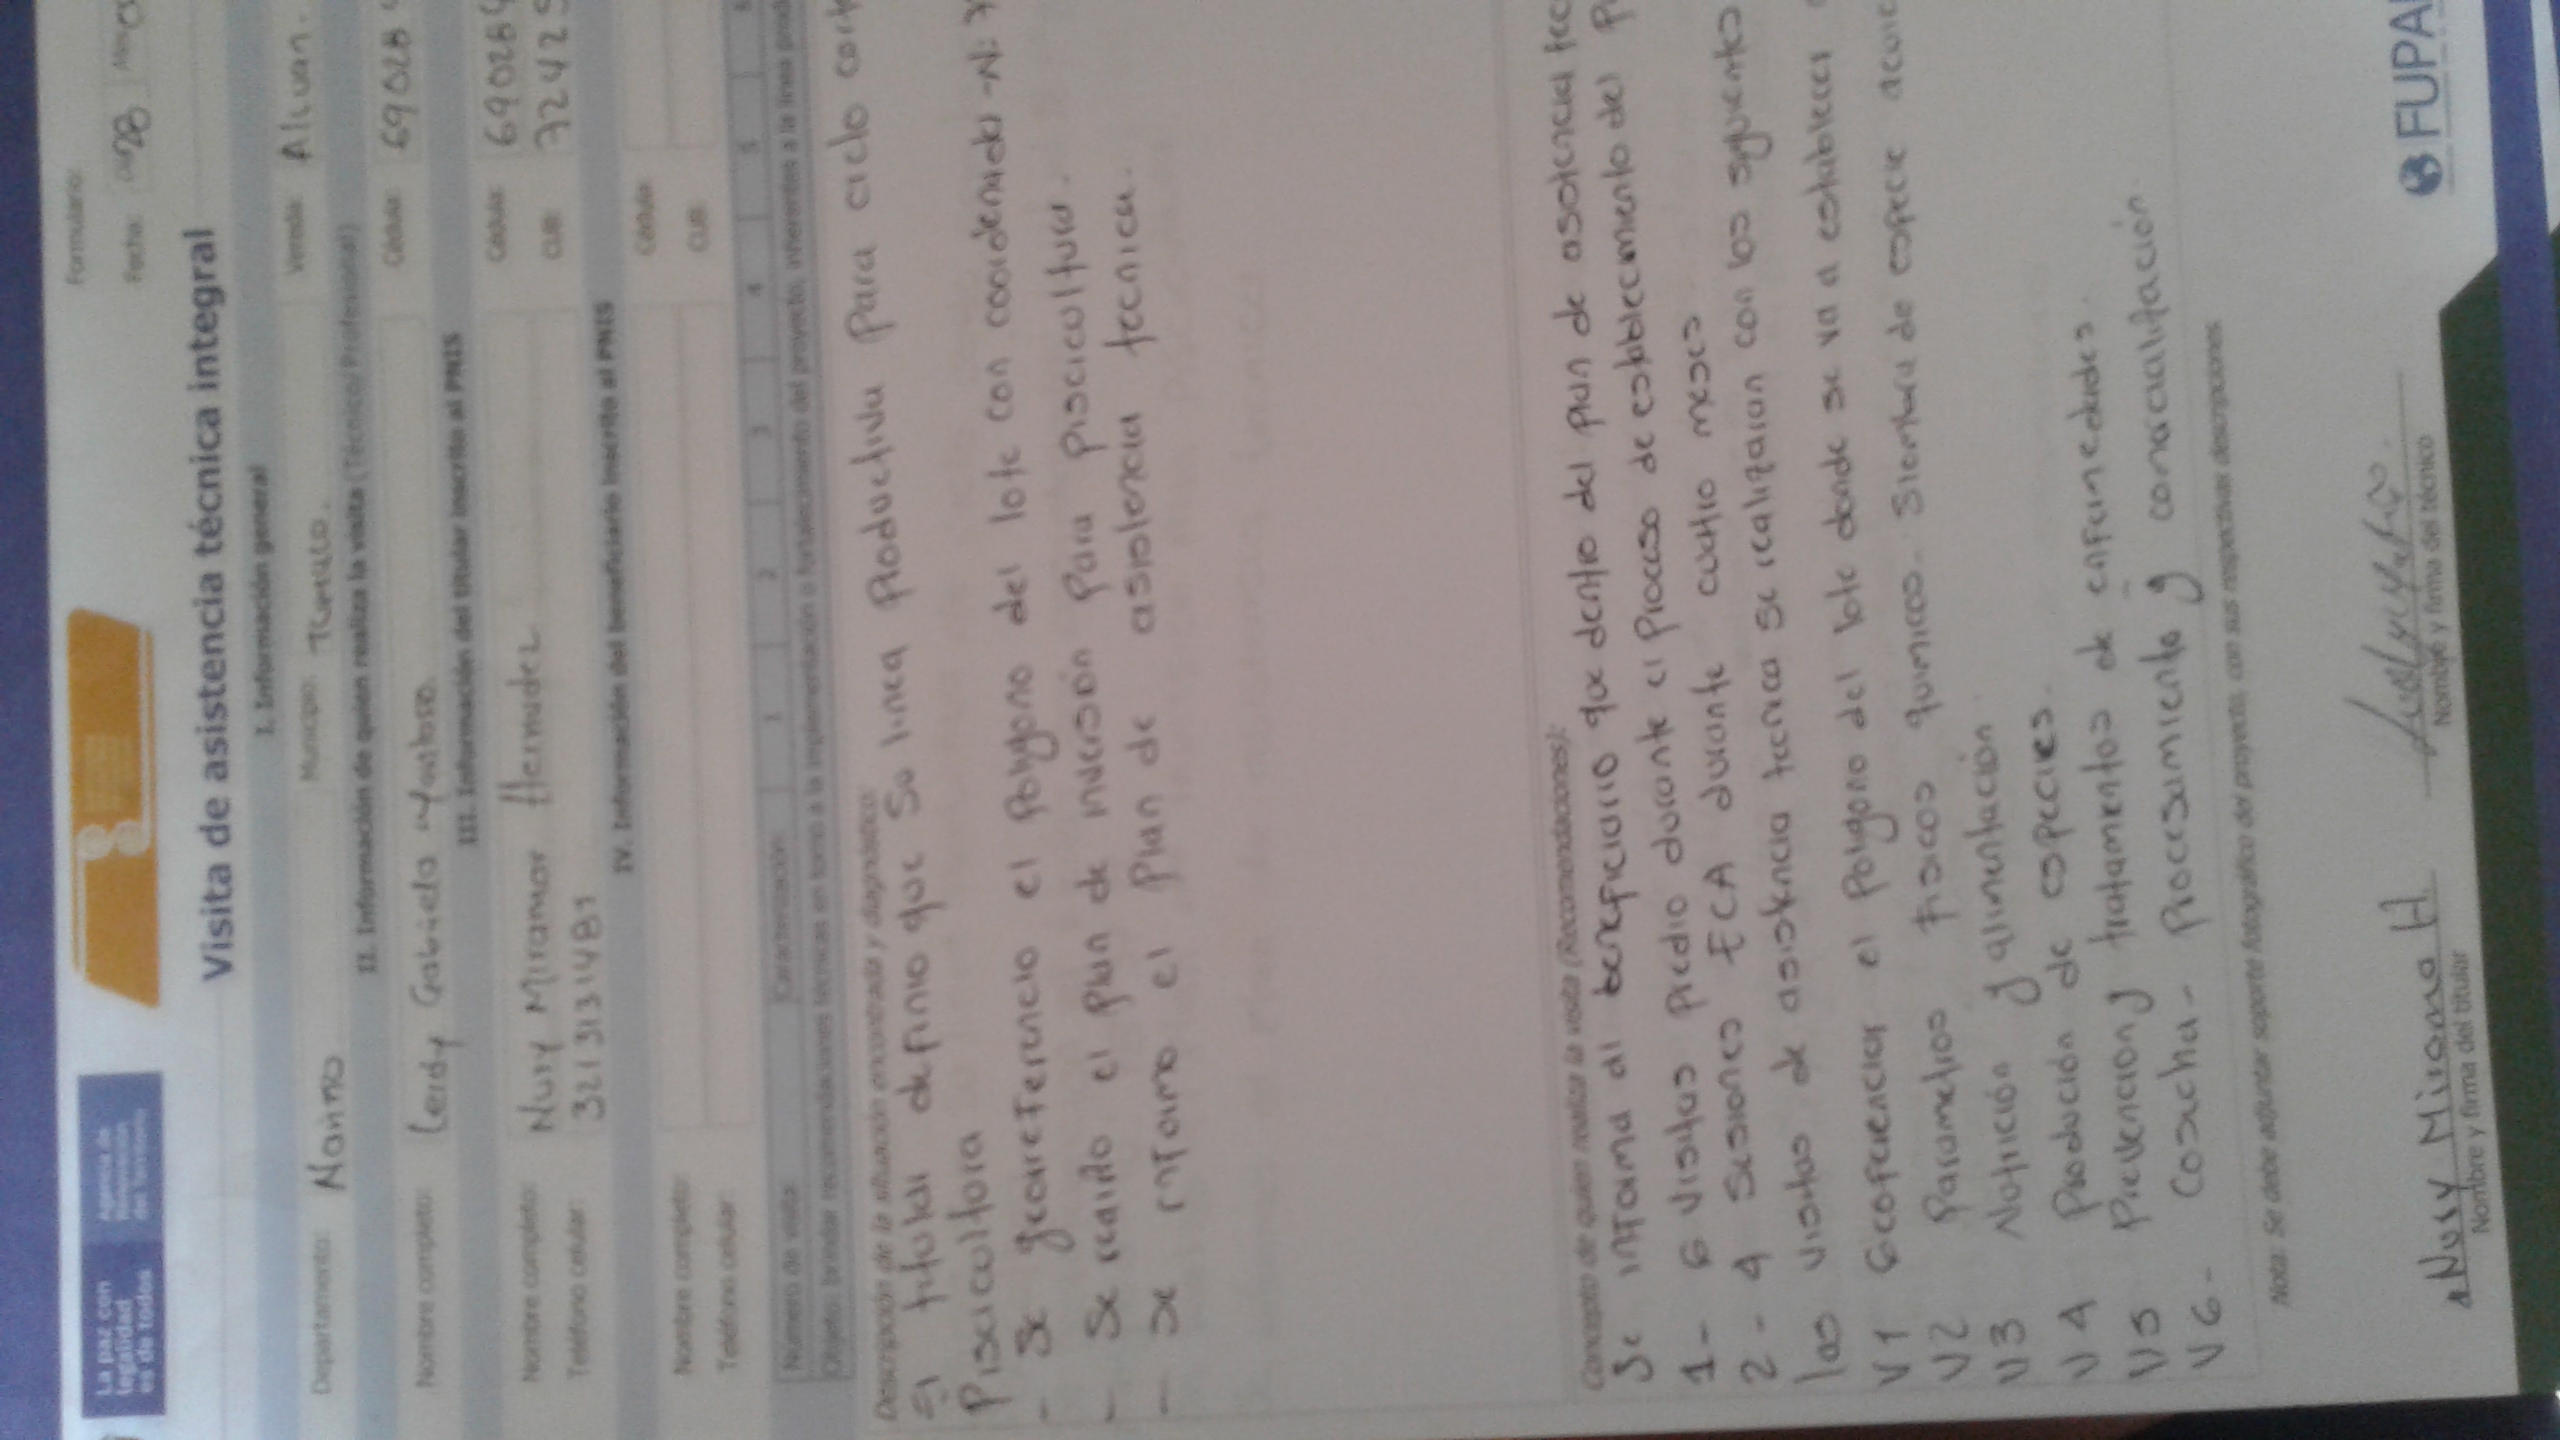 La paz con legalidad es de todos
Agencia de Renovación del Territorio
Formulario:
Fecha: 08
Visita de asistencia técnica integral
I. Información general
Departamento: Nariño Municipio: Tumaco. Vereda:
II. Información de quien realiza la visita (Técnico/ Profesional)
Nombre completo: Leidy Gabriela Cédula: 69028
III. Información del titular inscrito al PNIS
Nombre completo: Nury Miramar Hernudez Cédula: 690284
Teléfono celular: 3213131489 CUB: 72425
IV. Información del beneficiario inscrito al PNIS
Nombre completo: Cédula:
Teléfono celular: CUB:
Número de visita: Caracterización 1 2 3 4 5 6
Objeto: brindar recomendaciones técnicas en torno a la implementación o fortalecimiento del proyecto, inherentes a la línea
Descripción de la situación encontrada y diagnóstico:
El titular definio que su linea productiva para ciclo
Piscicultora
- Se georeferencio el poligono del lote con coordenadas -N: 7
- Se realiño el plan de inversión para piscicultura.
- se informo el plan de asistencia tecnica.
Concepto de quien realiza la visita (Recomendaciones):
Se informa al beneficiario que dentro del plan de asistencia
1- 6 visitas predio durante el proceso de establecimiento del
2- 4 sesiones ECA durante cuatro meses
las visitas de asistencia tecnica se realizaran con los
V1 Geofeenciar el poligono del lote donde se va a establecer
V2 Parametros fisicos quimicos. Siembra de especie
V3 Notrición y alimentación.
V4 Produción de especies.
V5 Prevencion y tratamientos de enfermedades.
V6- Cosecha - Procesamiento y
Nota: Se debe adjuntar soporte fotográfico del proyecto, con sus respectivas descripciones
Nury Mirama H
Nombre y firma del titular
Nombre y firma del técnico
FUPA